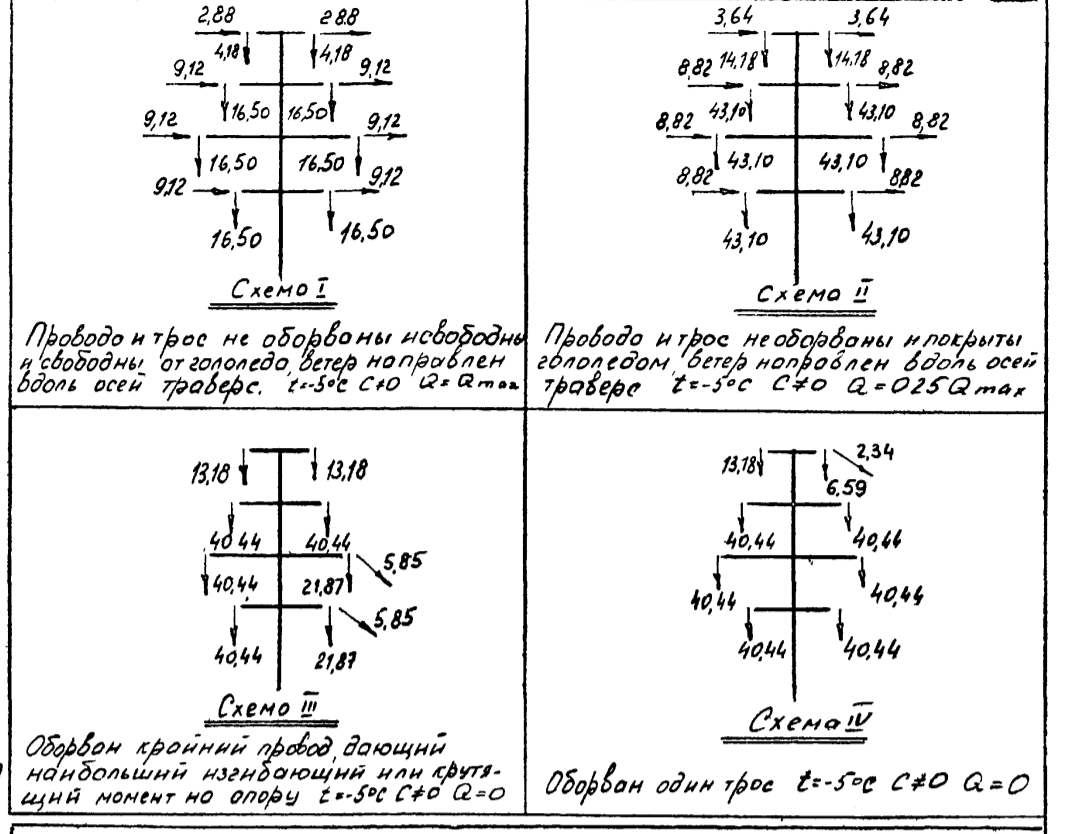 2,88 2 8.8
4,18 4,18
9,12 9,12
16,50 16,50
9,12 9,12
16,50 16,50
9,12 9,12
16,50 16,50
Схема I
Провода и трос не оборваны и свободны
и свободны от гололеда, ветер направлен
вдоль осей траверс. t=-5°C C≠0 Q=Qmax
3,64 3,64
14,18 14,18
8,82 8,82
43,10 43,10
8,82 8,82
43,10 43,10
8,82 8,82
43,10 43,10
Схема II
Провода и трос не оборваны и покрыты
гололедом, ветер направлен вдоль осей
траверс t=-5°C C≠0 Q=025Qmax
13,18 13,18
40 44 40,44
5,85
40,44 21,87
5,85
40,44 21,87
Схема III
Оборван крайний провод, дающий
наибольший изгибающий или крутя-
щий момент на опору t=-5°C C≠0 Q=0
13,18 2,34
6,59
40,44 40,44
40,44 40,44
40,44 40,44
Схема IV
Оборван один трос t=-5°C C≠0 Q=0